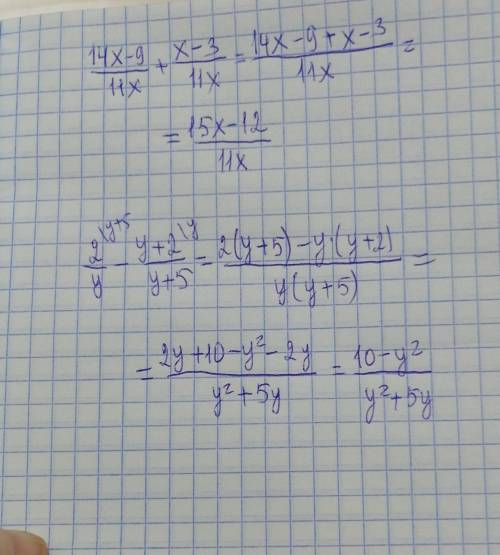 (14x-9)/(11x) + (x-3)/(11x) = (14x-9+x-3)/(11x) =
= (15x-12)/(11x)
2\y+5/y - (y+2)\y/(y+5) = (2(y+5)-y·(y+2))/(y(y+5)) =
= (2y+10-y²-2y)/(y²+5y) = (10-y²)/(y²+5y)